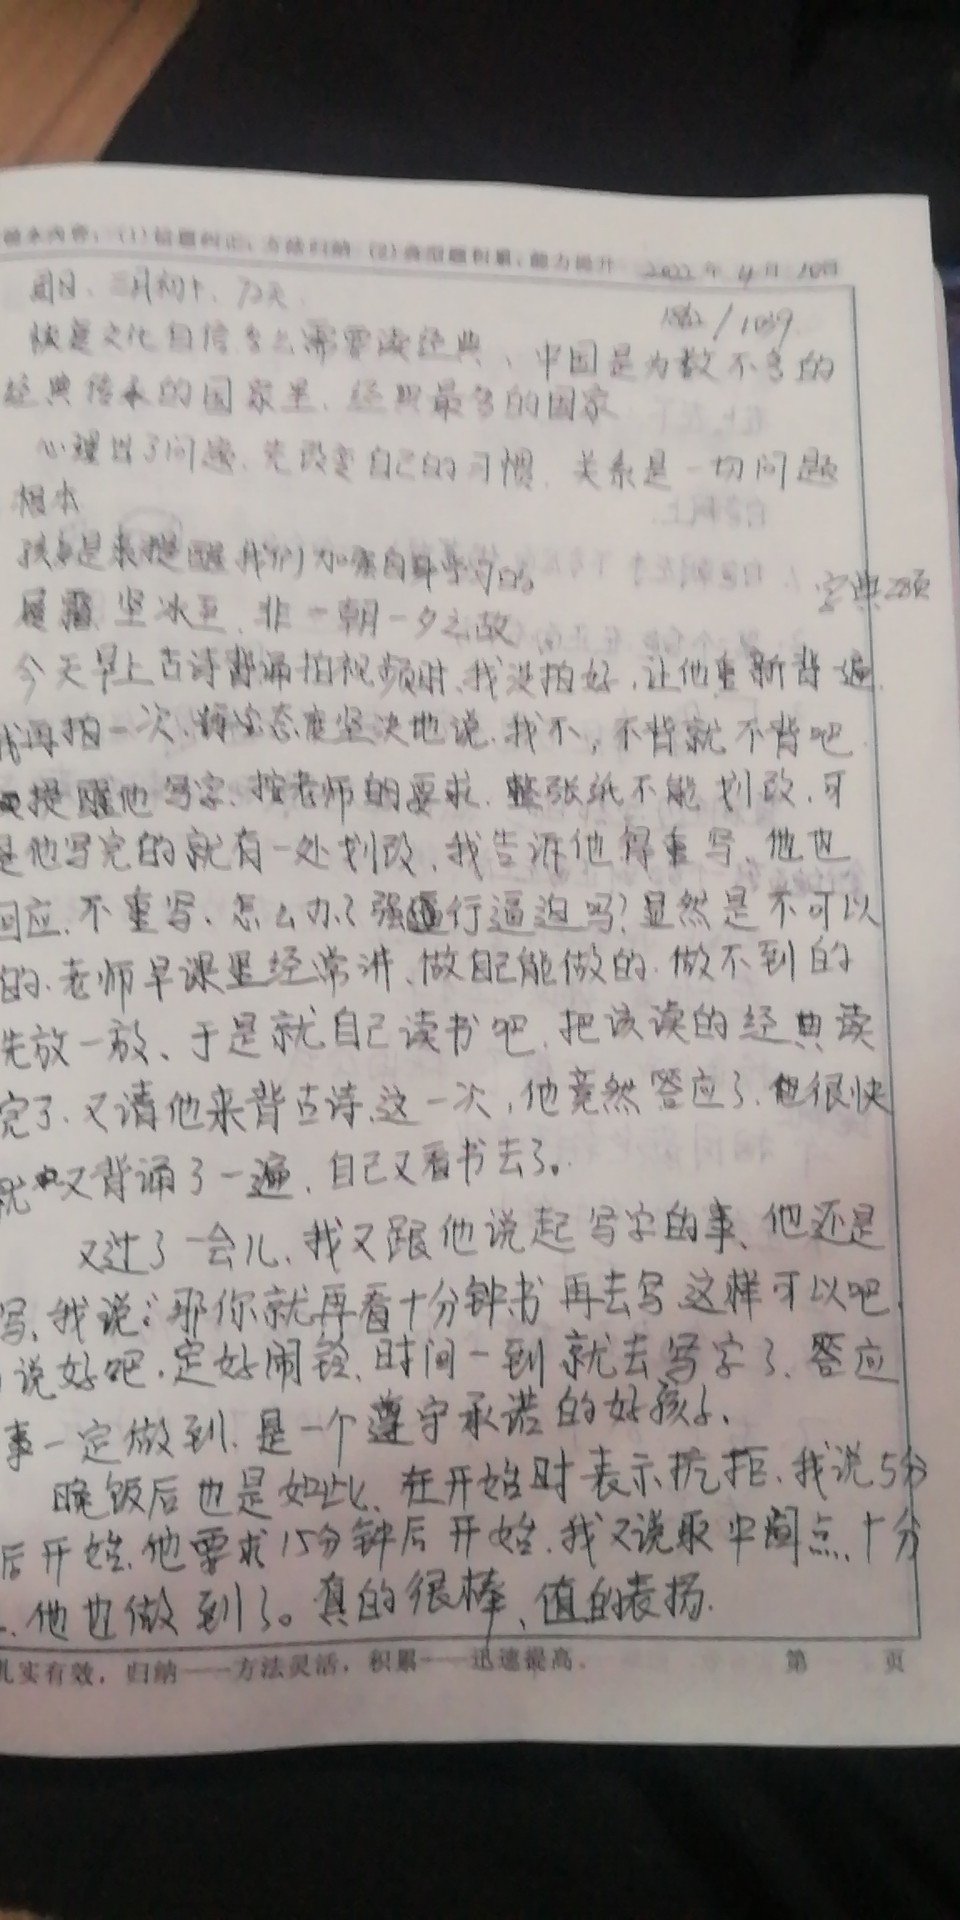 内容：（1）错题纠正，方法归纳（2）典型题积累，能力提升 2022年4月10日
周日、三月初十、72天、
1862/1039
恢复文化自信为什么需要读经典、中国是为数不多的
经典传承的国家里、经典最多的国家
心理出了问题、先改变自己的习惯、关系是一切问题
根本
孩子是来提醒我们加强自身学习的。
字典28页
履霜、坚冰至、非一朝一夕之故
今天早上古诗背诵拍视频时、我没拍好，让他重新背遍、
我再拍一次、态度坚决地说、我不，不背就不背吧
提醒他写字、按老师的要求、整张纸不能划改、可
是他写完的就有一处划改、我告诉他得重写、他也
回应、不重写、怎么办？强行逼迫吗？显然是不可以
的、老师早课里经常讲、做自己能做的、做不到的
先放一放、于是就自己读书吧、把该读的经典读
完了、又请他来背古诗、这一次，他竟然答应了、也很快
就又背诵了一遍、自己又看书去了。
又过了一会儿、我又跟他说起写字的事、他还是
写、我说：那你就再看十分钟书再去写、这样可以吧、
说好吧、定好闹铃、时间一到就去写字了、答应
事一定做到、是一个遵守承诺的好孩子、
晚饭后也是如此、在开始时表示抗拒、我说5分
后开始、他要求15分钟后开始、我又说取中间点、十分
、他也做到了。真的很棒、值的表扬.
扎实有效，归纳——方法灵活，积累——迅速提高。 第 页